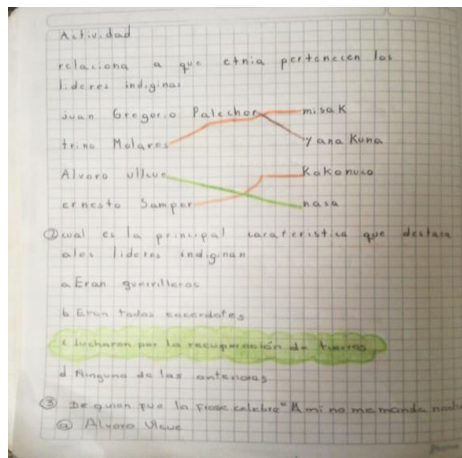 Actividad
relaciona a que etnia pertenecen los
lideres indiginas
juan Gregorio Palechor misak
trino Molares Yanakuna
Alvaro ullcue Kokonuco
ernesto Samper nasa
② cual es la principal caracteristica que destaca
alos lideres indiginan
a Eran guerrilleros
b Eran todos sacerdotes
c lucharon por la recuperación de tierras
d Ninguna de las anteriores
③ De quien fue la frase celebre "A mi no me manda nadie
ⓐ Alvaro Ulcue